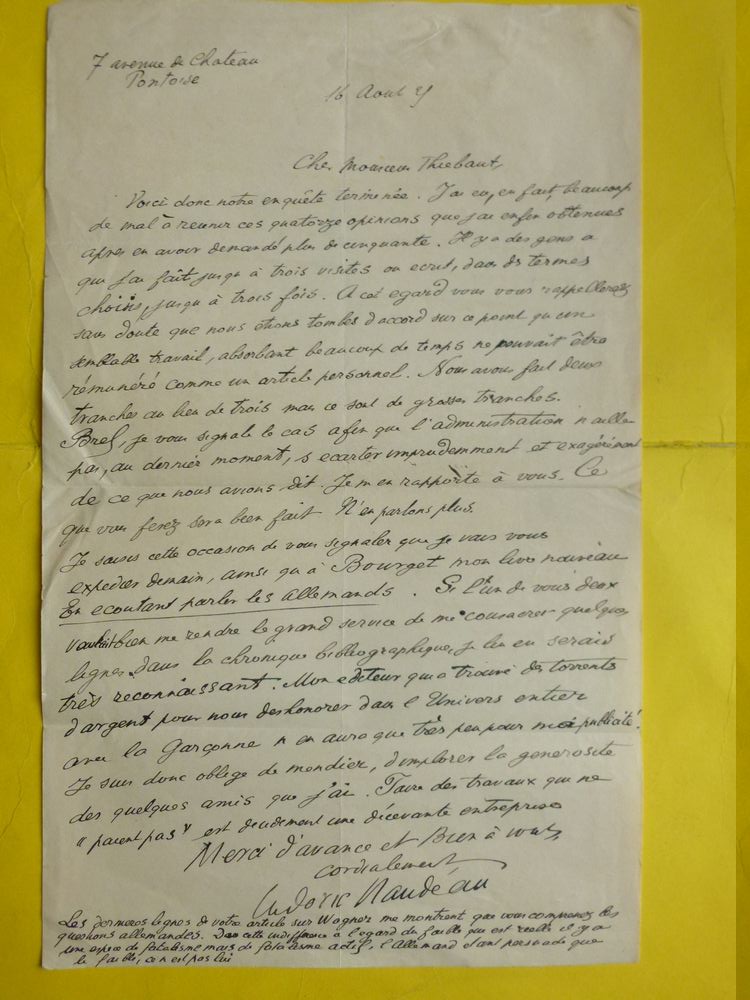 7 avenue de Chateau
Pontoise
16 Aout
Cher Monsieur Thiebaut,
Voici donc notre enquête terminée. J'ai eu, en fait, beaucoup
de mal à reunir ces quatorze opinions que j'ai enfin obtenues
apres en avoir demandé plus de cinquante. Il y a des gens a
qui j'ai fait jusqu'à trois visites ou ecrit, dans des termes
choisis, jusqu'à trois fois. A cet egard vous vous rappellerez
sans doute que nous etions tombés d'accord sur ce point qu'un
semblable travail, absorbant beaucoup de temps ne pouvait être
rémunéré comme un article personnel. Nous avons fait deux
tranches au lieu de trois mais ce sont de grosses tranches.
Bref, je vous signale le cas afin que l'administration n'aille
pas, au dernier moment, s'ecarter imprudemment et exagérément
de ce que nous avions dit. Je m'en rapporte à vous. Ce
que vous ferez sera bien fait N'en parlons plus.
Je saisis cette occasion de vous signaler que je vais vous
expedier demain, ainsi qu'à Bourget mon livre nouveau
En ecoutant parler les allemands. Si l'un de vous deux
voulait bien me rendre le grand service de me consacrer quelques
lignes dans la chronique bibliographique, je lui en serais
très reconnaissant. Mon editeur qui a trouvé des torrents
d'argent pour nous deshonorer dans l'Univers entier
avec la Garçonne n'en aura que très peu pour ma publicité!
Je suis donc obligé de mendier, d'implorer la generosité
des quelques amis que j'ai. Faire des travaux qui ne
"paient pas" est decidement une décevante entreprise
Merci d'avance et Bien à vous,
cordialement,
Ludovic Naudeau
Les dernieres lignes de votre article sur Wagner me montrent que vous comprenez les
questions allemandes. Dans cette indifference à l'egard du faible qui est réelle il y a
une espece de fatalisme mais de fatalisme actif, l'Allemand etant persuadé que
le faible, ce n'est pas lui